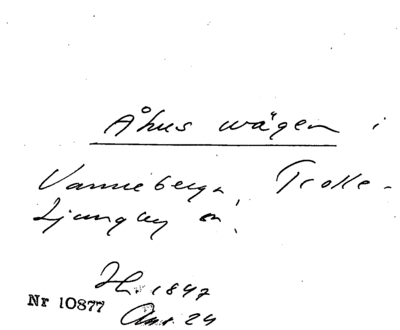 Åhus wägen i
Vanneberga, Trolle-
Ljungby sn.
1847
Nr 10877
24